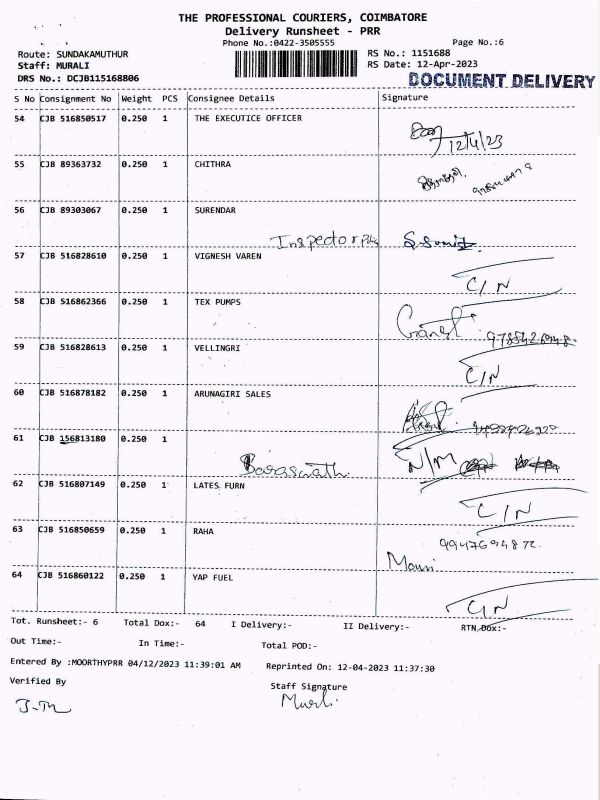 THE PROFESSIONAL COURIERS, COIMBATORE
Delivery Runsheet - PRR
Phone No.:0422-3505555 Page No.:6
Route: SUNDAKAMUTHUR RS No.: 1151688
Staff: MURALI RS Date: 12-Apr-2023
DRS No.: DCJB115168806 DOCUMENT DELIVERY
S No Consignment No Weight PCS Consignee Details Signature
54 CJB 516850517 0.250 1 THE EXECUTICE OFFICER
12/4/23
55 CJB 89363732 0.250 1 CHITHRA
56 CJB 89303067 0.250 1 SURENDAR
Inspector
57 CJB 516828610 0.250 1 VIGNESH VAREN
C/N
58 CJB 516862366 0.250 1 TEX PUMPS
Ganesh
59 CJB 516828613 0.250 1 VELLINGRI
C/N
60 CJB 516878182 0.250 1 ARUNAGIRI SALES
61 CJB 156813180 0.250 1
N/M
62 CJB 516807149 0.250 1 LATES FURN
C/N
63 CJB 516850659 0.250 1 RAHA
Mouni
64 CJB 516860122 0.250 1 YAP FUEL
C/N
Tot. Runsheet:- 6 Total Dox:- 64 I Delivery:- II Delivery:- RTN Dox:-
Out Time:- In Time:- Total POD:-
Entered By :MOORTHYPRR 04/12/2023 11:39:01 AM Reprinted On: 12-04-2023 11:37:30
Verified By Staff Signature
Murli